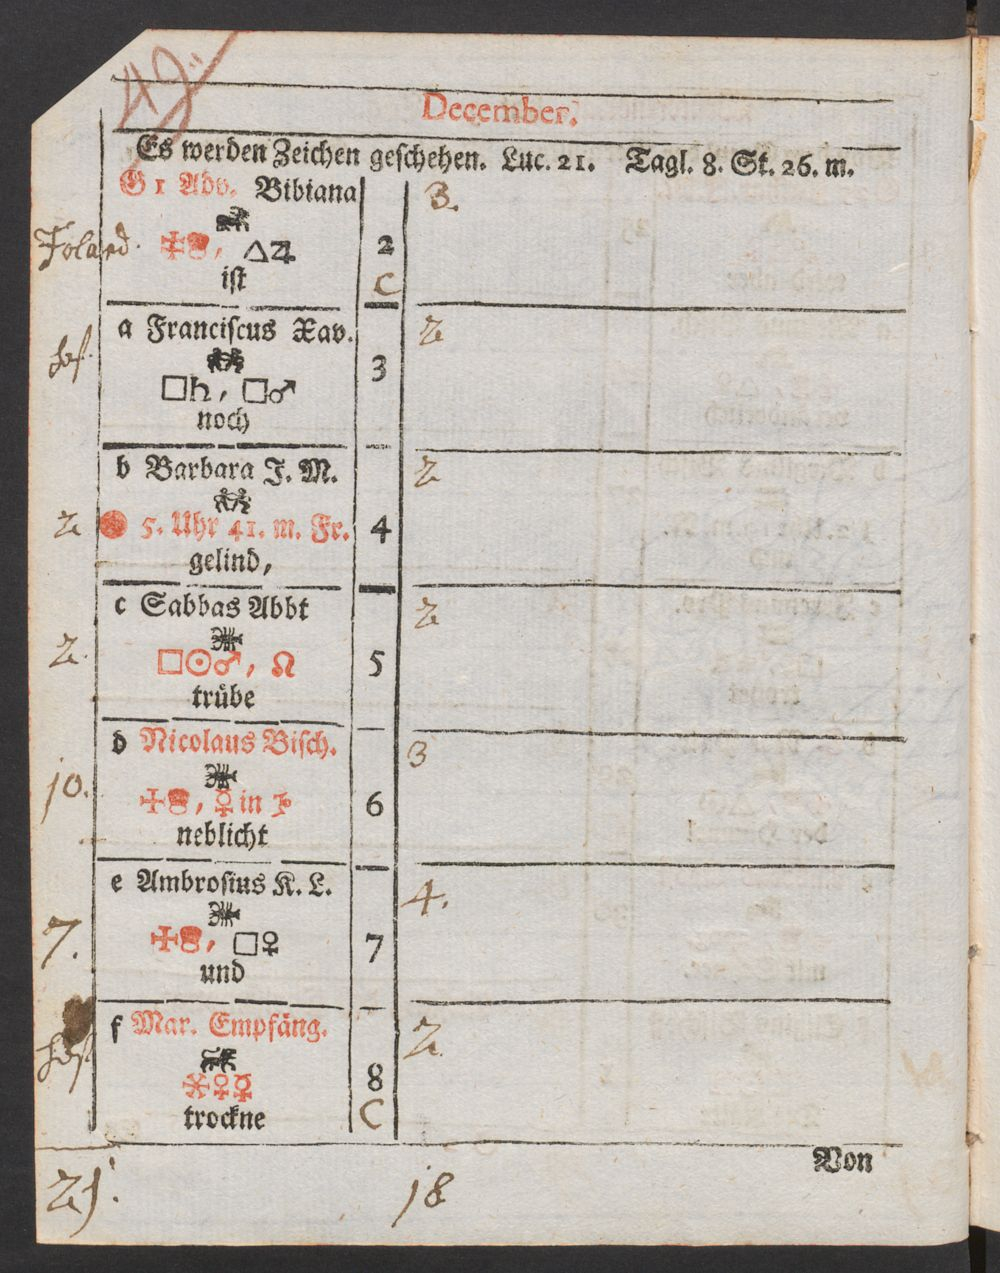 49.
December.
Es werden Zeichen geschehen. Luc. 21. Tagl. 8. St. 26. m.
G 1 Adv. Bibiana
3.
△♃
2
ist
C
a Franciscus Xav.
2
□♄, □♂
3
noch
b Barbara J. M.
2
2
5. Uhr 41. m. Fr.
4
gelind,
c Sabbas Abbt
2
2
□☉♂, ☊
5
trübe
d Nicolaus Bisch.
3
10.
♀ in
6
neblicht
e Ambrosius K. L.
4.
7.
□♀
7
und
f Mar. Empfäng.
2
♀☿
8
trockne
C
Von
21.
18